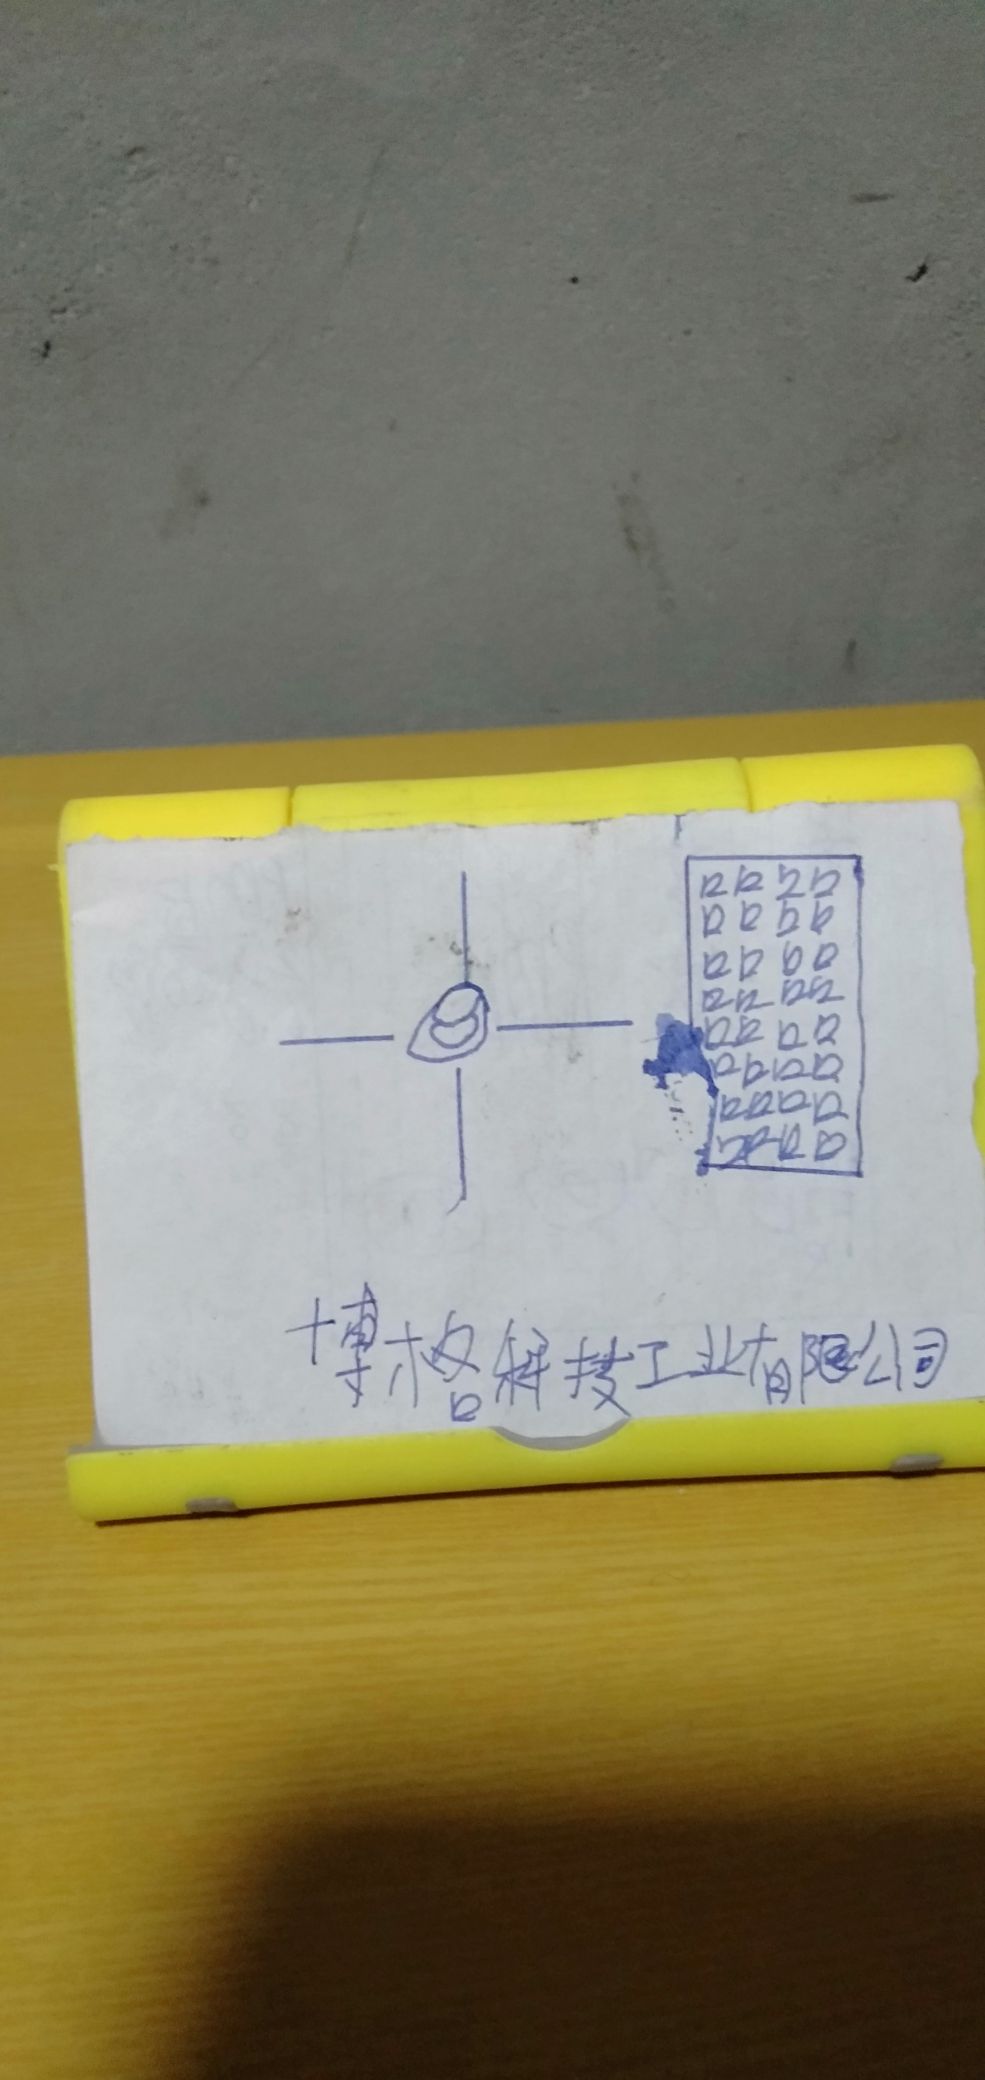 博格科技工业有限公司